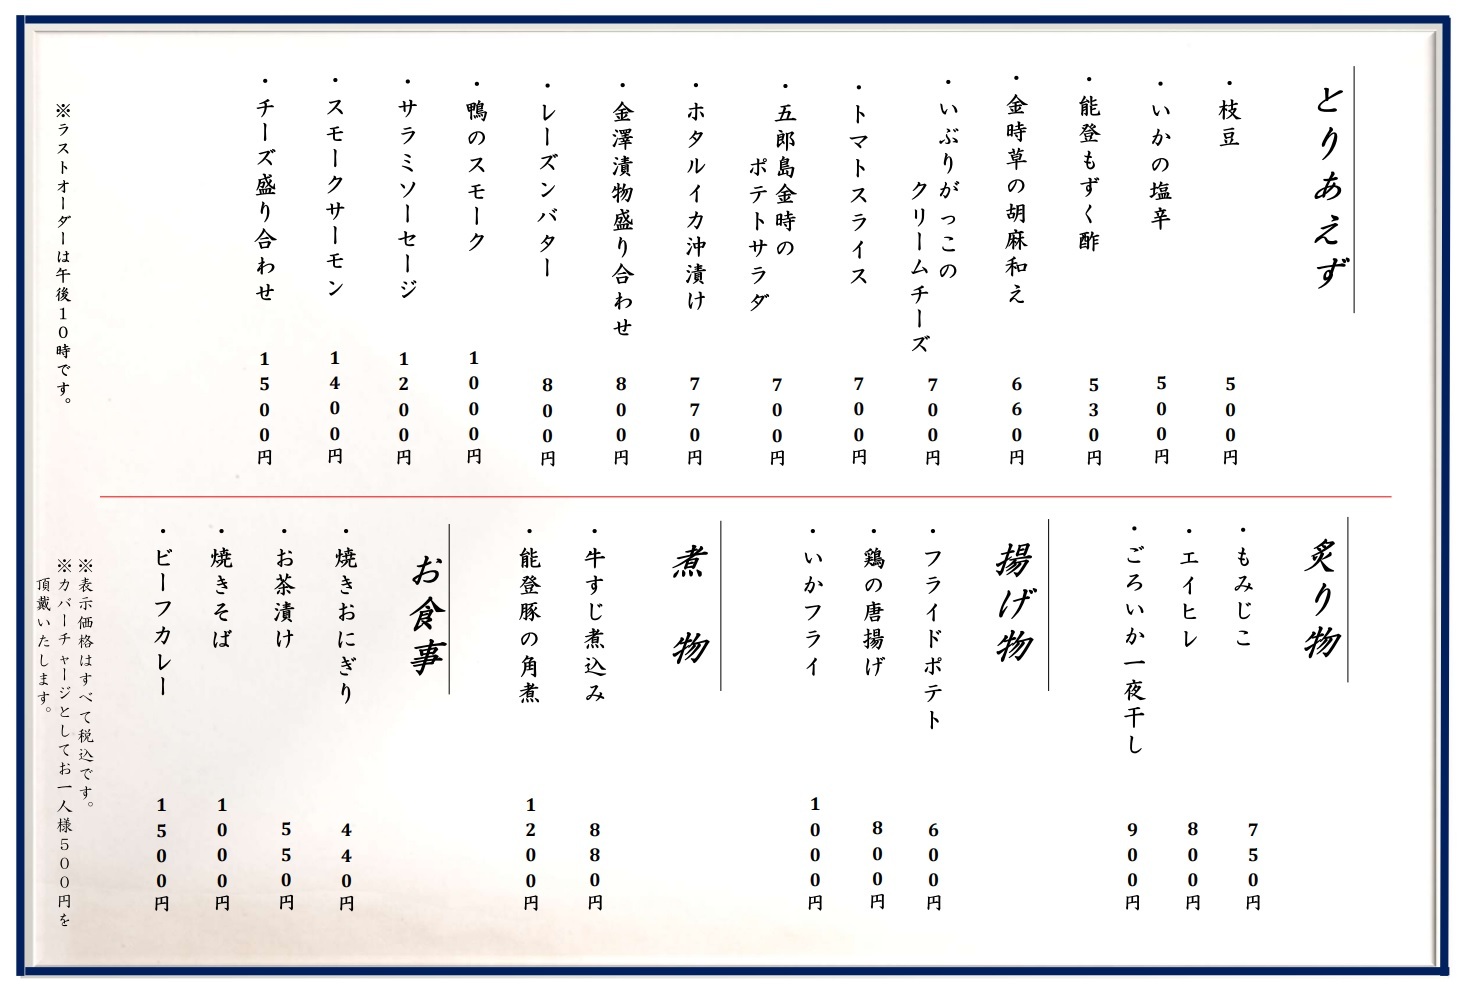 とりあえず
・枝豆 500円
・いかの塩辛 500円
・能登もずく酢 530円
・金時草の胡麻和え 660円
・いぶりがっこの
クリームチーズ 700円
・トマトスライス 700円
・五郎島金時の
ポテトサラダ 700円
・ホタルイカ沖漬け 770円
・金澤漬物盛り合わせ 800円
・レーズンバター 800円
・鴨のスモーク 1000円
・サラミソーセージ 1200円
・スモークサーモン 1400円
・チーズ盛り合わせ 1500円
※ラストオーダーは午後10時です。
炙り物
・もみじこ 750円
・エイヒレ 800円
・ごろいか一夜干し 900円
揚げ物
・フライドポテト 600円
・鶏の唐揚げ 800円
・いかフライ 1000円
煮物
・牛すじ煮込み 880円
・能登豚の角煮 1200円
お食事
・焼きおにぎり 440円
・お茶漬け 550円
・焼きそば 1000円
・ビーフカレー 1500円
※表示価格はすべて税込です。
※カバーチャージとしてお一人様500円を
頂戴いたします。